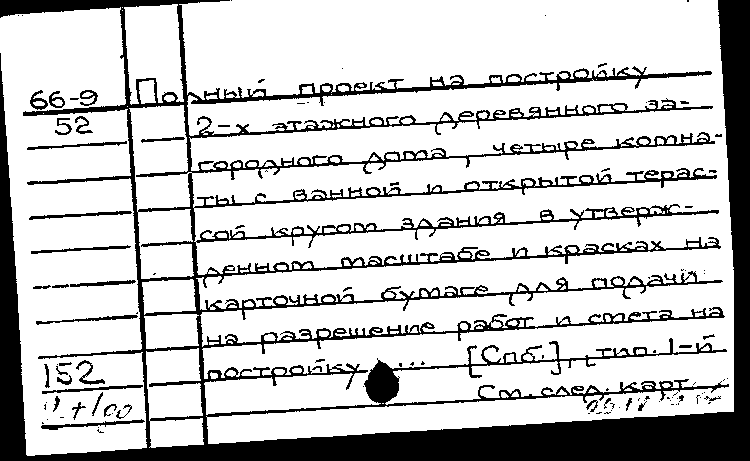 66-9 Полный проект на постройку
52 2-х этажного деревянного за-
городного дома, четыре комна-
ты с ванной и открытой терас-
сой кругом здания в утверж-
денном масштабе и красках на
карточной бумаге для подачи
на разрешение работ и смета на
152 постройку ... [Спб.], тип. 1-й
См. след. карт.